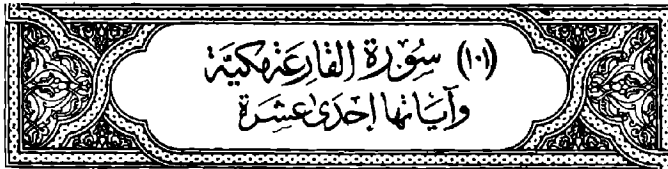 (١٠١) سُوْرَة القَارِعَة مَكيَّة
وَآيَاتهَا إِحْدَىٰ عَشَرَة